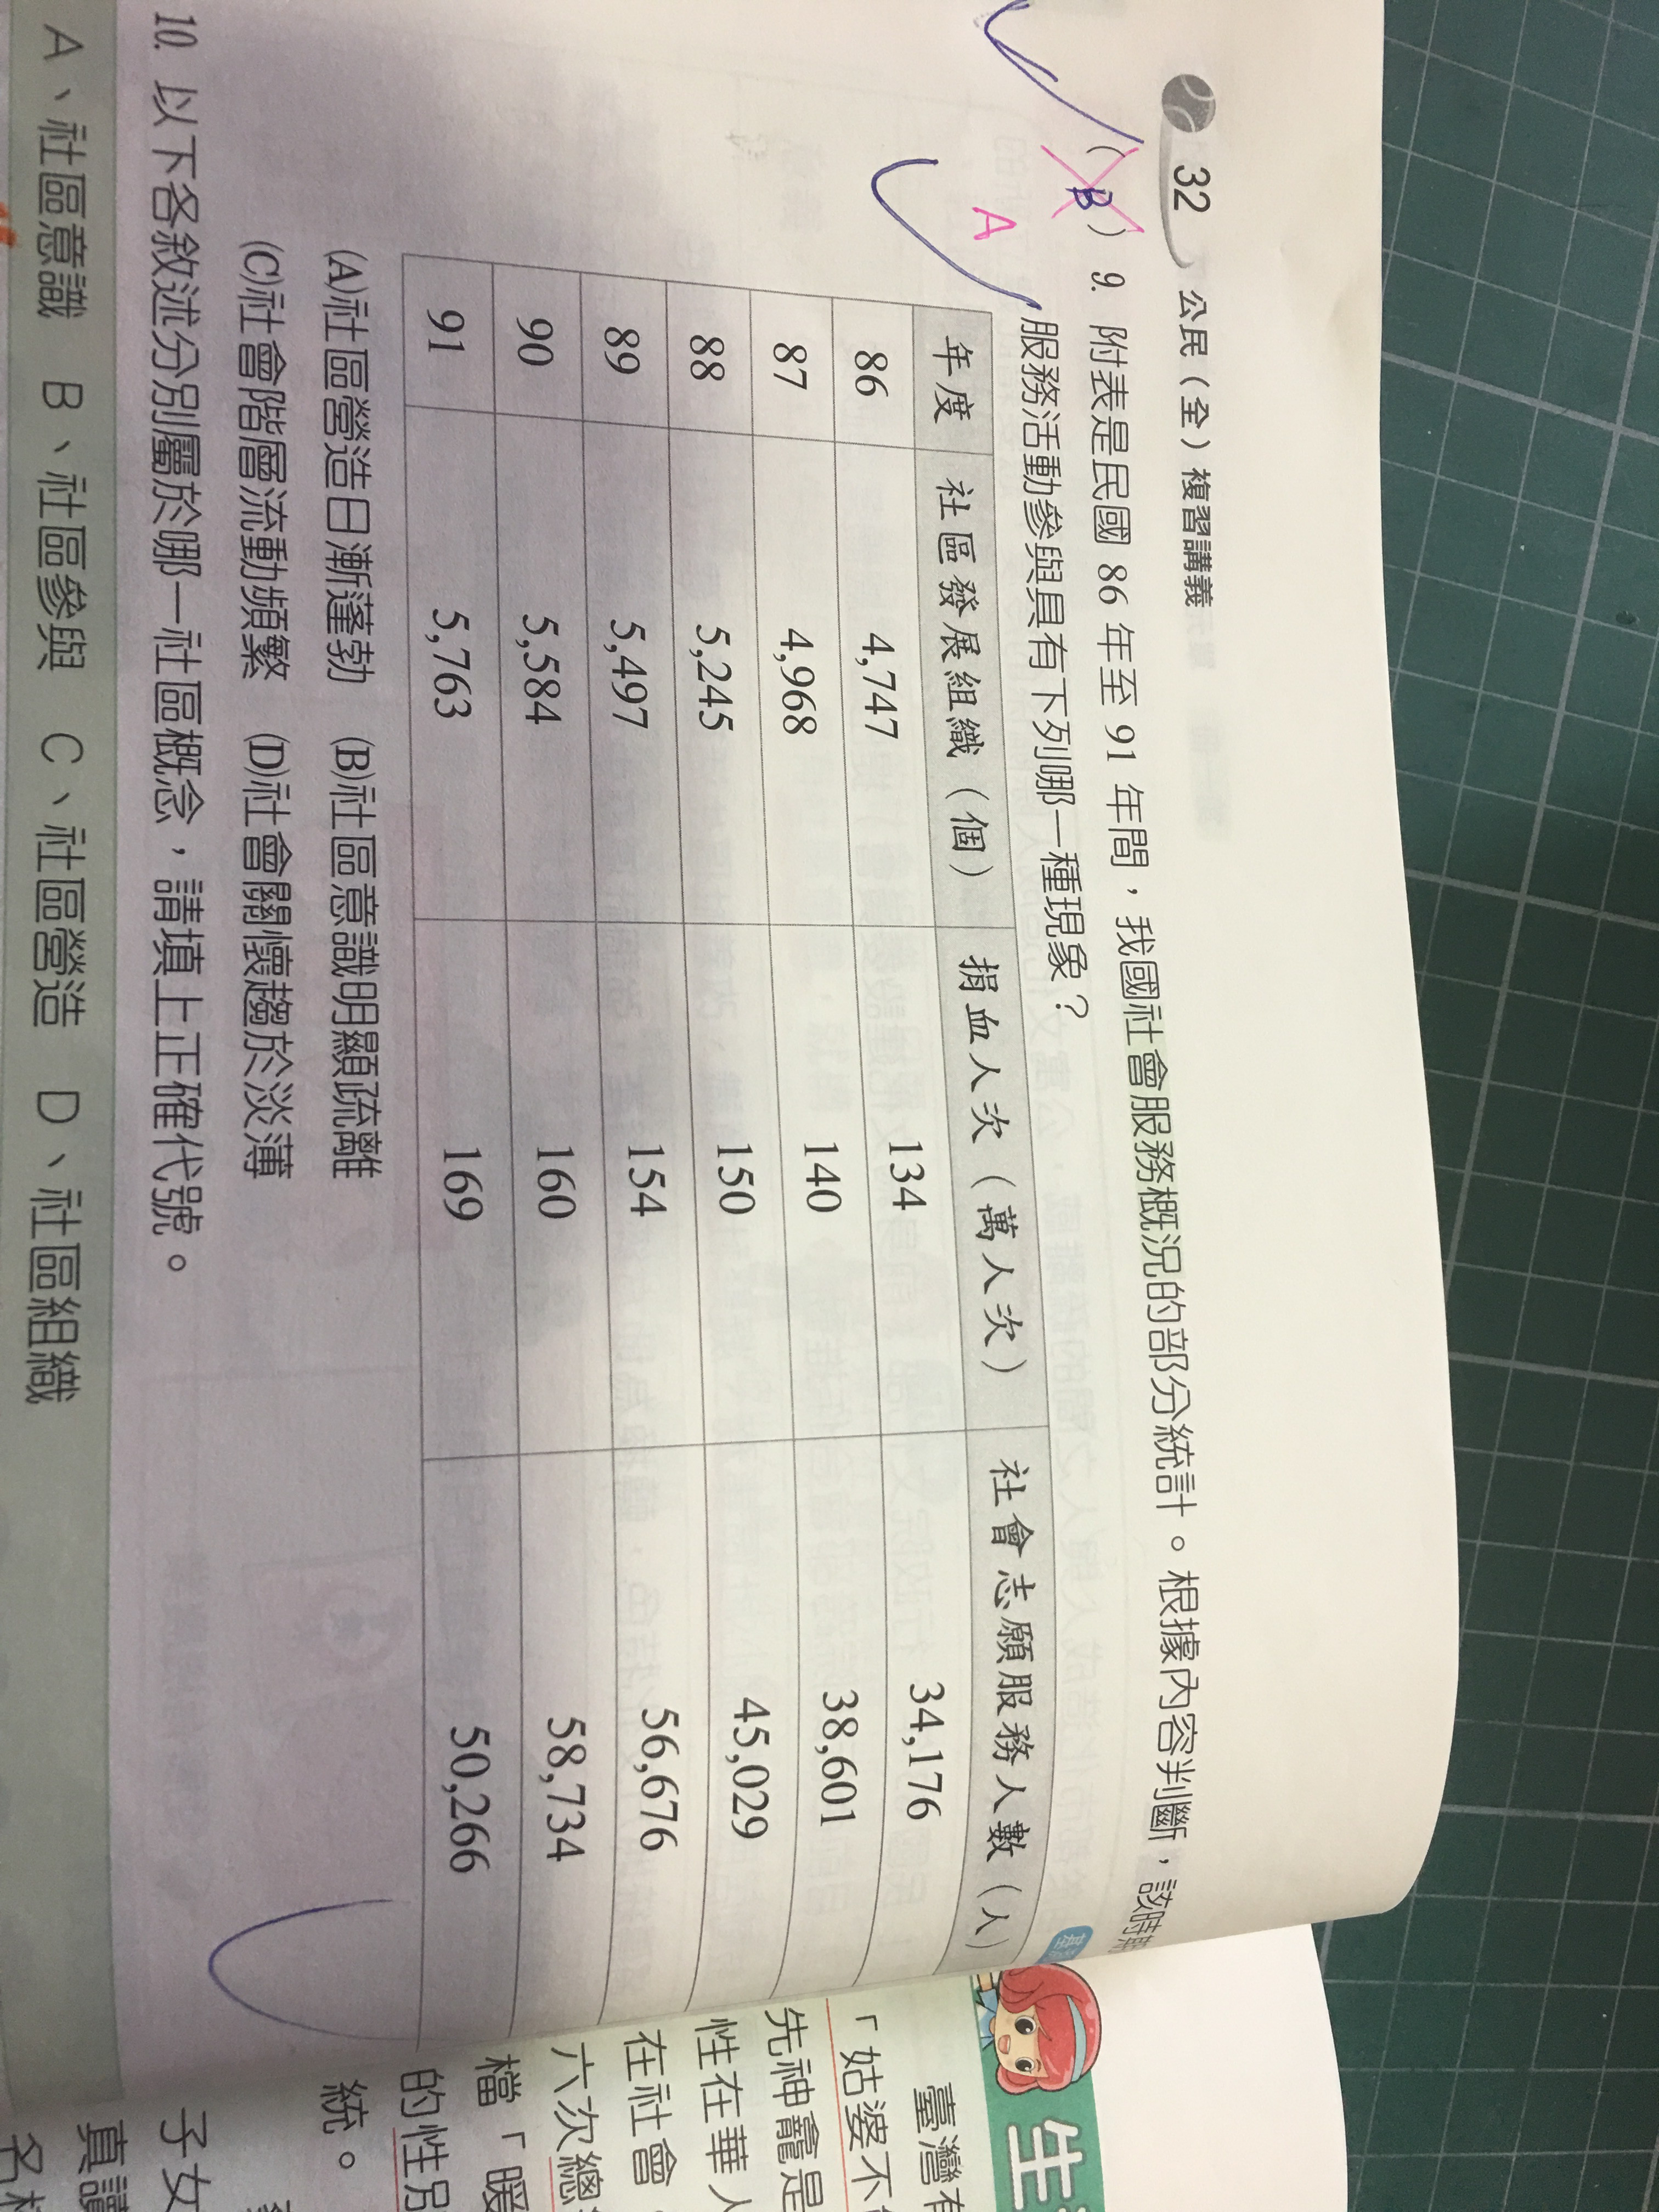 32 公民(全)複習講義
(B)9. 附表是民國 86 年至 91 年間，我國社會服務概況的部分統計。根據內容判斷，該時期
A
服務活動參與具有下列哪一種現象？
年度 社區發展組織(個) 捐血人次(萬人次) 社會志願服務人數(人)
86 4,747 134 34,176
87 4,968 140 38,601
88 5,245 150 45,029
89 5,497 154 56,676
90 5,584 160 58,734
91 5,763 169 50,266
(A)社區營造日漸蓬勃 (B)社區意識明顯疏離
(C)社會階層流動頻繁 (D)社會關懷趨於淡薄
10. 以下各敘述分別屬於哪一社區概念，請填上正確代號。
A、社區意識 B、社區參與 C、社區營造 D、社區組織
生
臺灣有
「姑婆不
先神龕是
性在華人
在社會
六次總
檔「暖
的性別
統。
子女
真讀